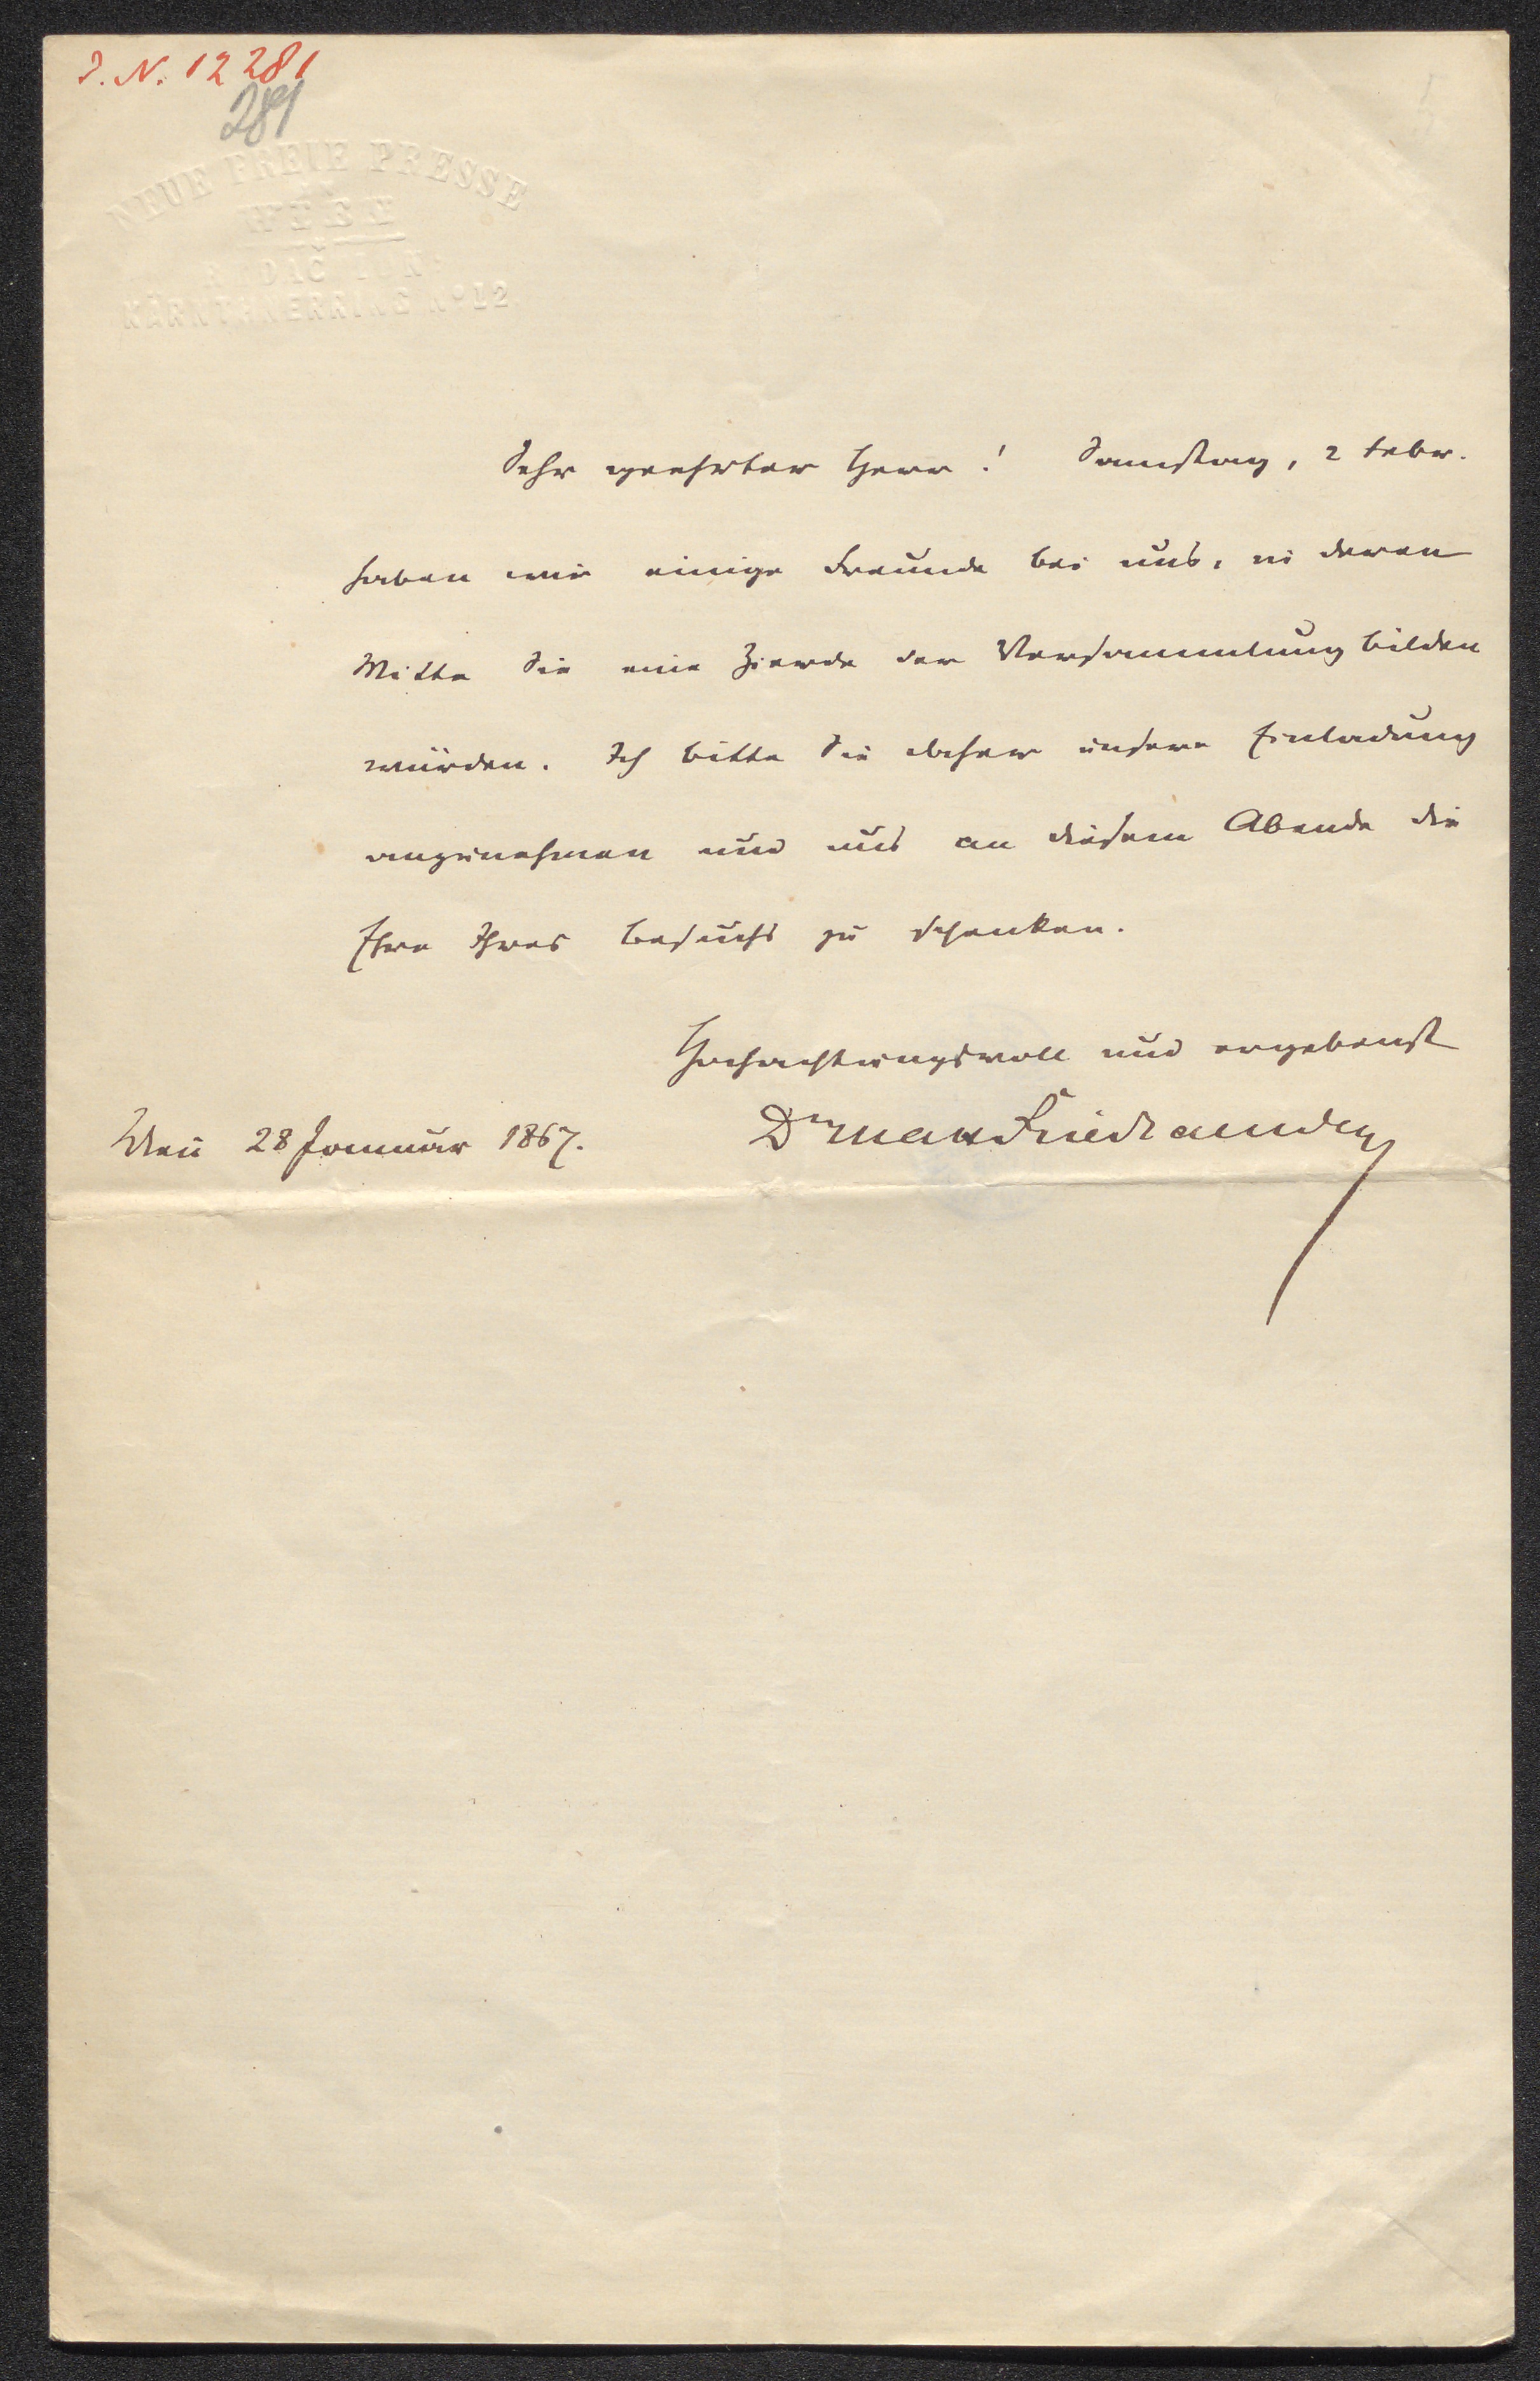 J. N. 12281
281
NEUE FREIE PRESSE
WIEN
KÄRNTHNERRING No 12.
Sehr geehrter Herr! Samstag, 2 Febr.
haben wir einige Freunde bei uns, in deren
Mitte Sie eine Zierde der Versammlung bilden
würden. Ich bitte Sie daher unsere Einladung
anzunehmen und uns an diesem Abende die
Ehre Ihres Besuchs zu schenken.
Hochachtungsvoll und ergebenst
Wien 28 Januar 1867. Dr Max Friedlaender